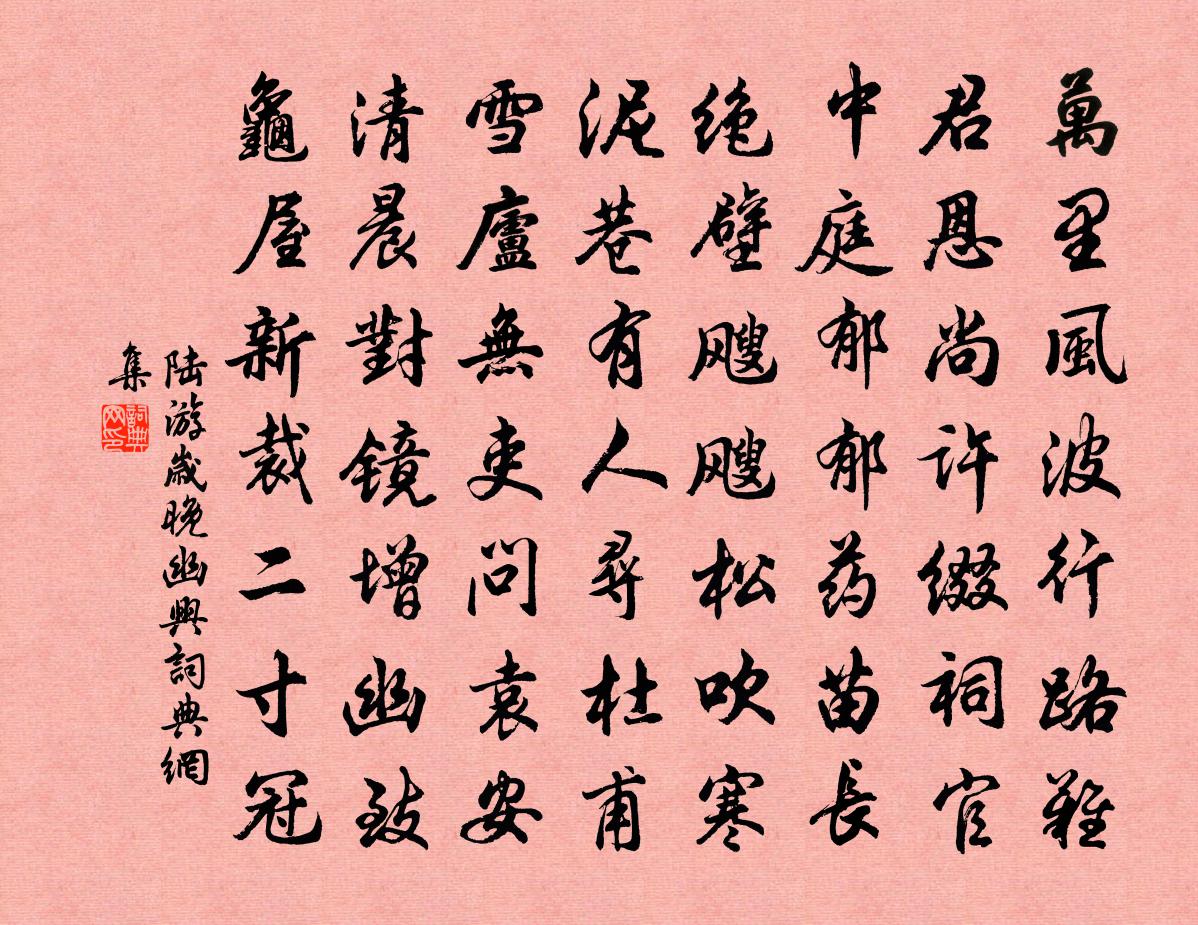 萬里風波行路難
君恩尚許綴祠官
中庭郁郁药苗長
绝壁飕飕松吹寒
泥巷有人尋杜甫
雪廬無吏問袁安
清晨對镜增幽致
龜屋新裁二寸冠
陆游歲晚幽興詞典網
集
詞典网印